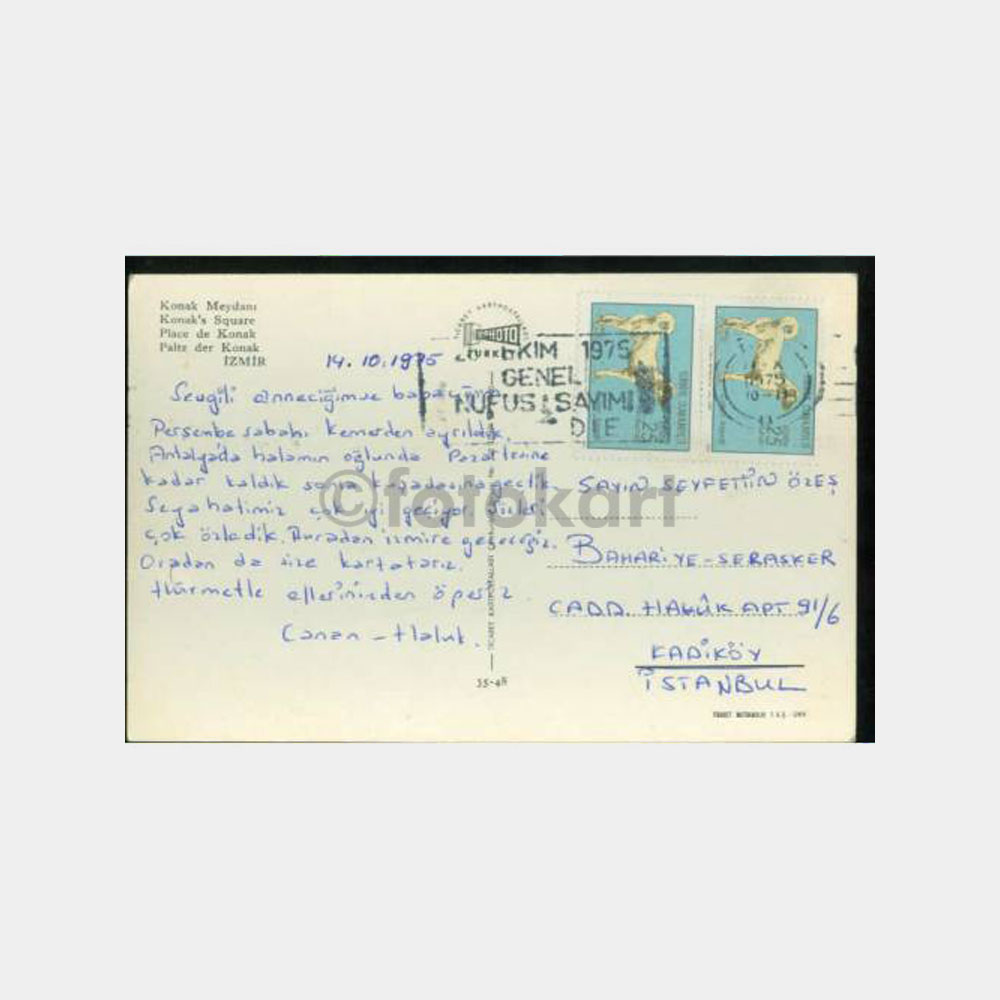 Konak Meydanı
Konak's Square
Place de Konak
Paltz der Konak
İZMİR
14.10.1975
Sevgili anneciğimve babacığım
Perşembe sabahı Kemerden ayrıldık.
Antalyada halamın oğlunda Pazartesine
kadar kaldık sonra Kuşadasına geçtik
Seyahatimiz çok iyi geçiyor. Sizleri
çok özledik. Buradan izmire geçeceğiz.
Oradan da size kart atarız.
Hürmetle ellerinizden öperiz.
Canan - Haluk.
EKİM 1975
GENEL
NÜFUS SAYIMI
DİE
SAYIN SEYFETTİN ÖZEŞ
BAHARİYE-SERASKER
CADD. HALÛK APT 91/6
KADİKÖY
İSTANBUL
TİCARET KARTPOSTALLARI
35-48
©fotokart